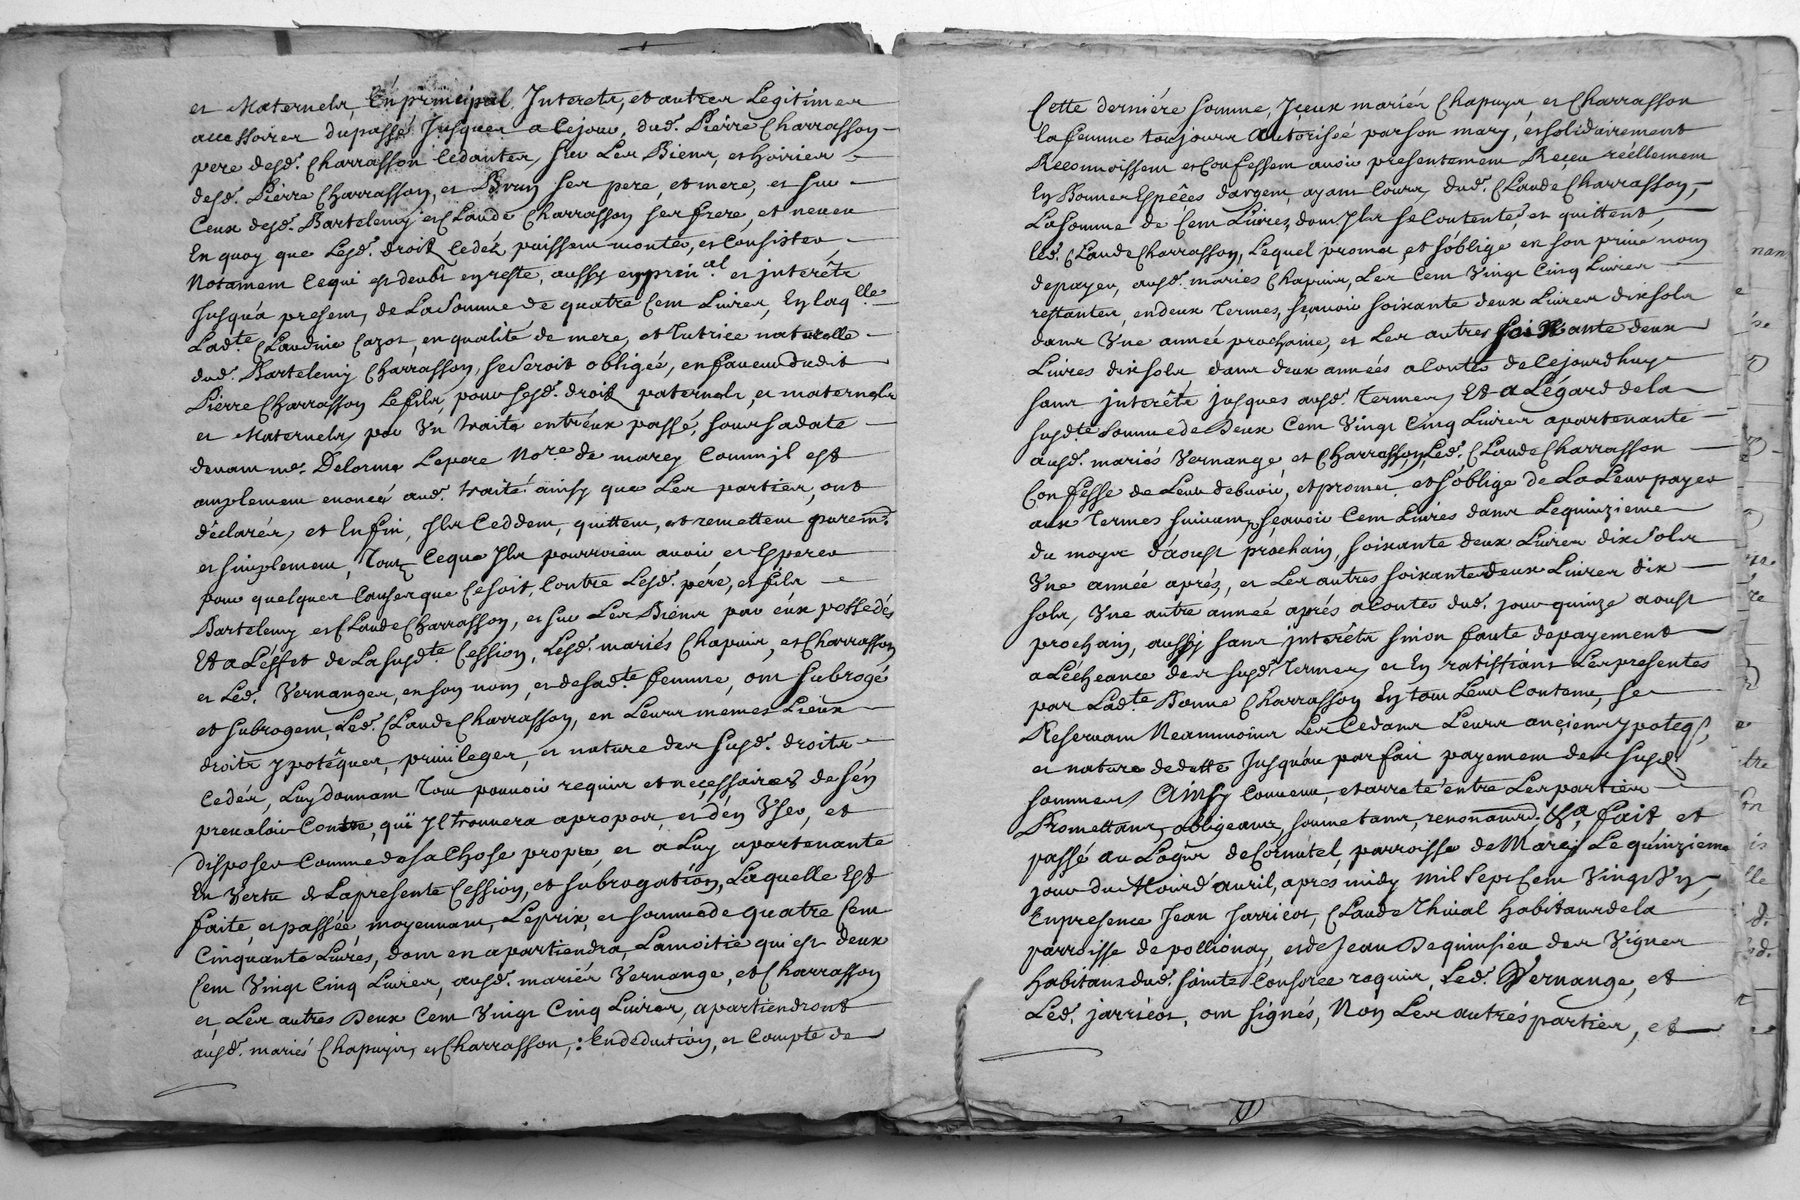 et Maternels, En principal, Interets, et autres Legitimes
accessoires du passé Jusques a cejour, dud. Pierre Charrasson
pere desd. Charrasson Cedantes, sur Les Biens, et hoiries
desd. Pierre Charrasson, et Brun ses pere, et mere, et sur
Ceux desd. Bartelemy et Claude Charrasson ses frere, et neveu
En quoy que Lesd. droits Cedés puissent monter, et Consister
Notament Cequi est deubt en reste, aussy en prin.al et interêts
Jusqu'a present, de La Somme de quatre Cent Livres, En laq.lle
Lad.te Claudine Cazot, en qualité de mere, et tutrice naturelle
dud. Bartelemy Charrasson, se seroit obligée, en faveur dudit
Pierre Charrasson Le fils, pour sesd. droits paternels, et maternels
et Maternels, par Un traité entréux passé, sour sa date
devant me. Delorme Lepere No.re de marcy Comme jl est
amplement enoncé aud. traité ainsy que Les parties, ont
déclarés, et Enfin, Jls Ceddent, quittent, et remettent purem.t
et simplement, Tout Ceque Jls pourroient avoir, et Esperer
pour quelques Causes que Cesoit, Contre Lesd. pére, et fils
Bartélemy et Claude Charrasson, et sur Les Biens par eux possedés
Et a L'éffet de La susd.te Cession, Lesd. mariés Chapuis, et Charrasson
et Led. Vernanges, en son nom, et de sad.te femme, ont subrogé
et subrogent, Led. Claude Charrasson, en Leurs memes Lieux
droits ypotêques, privileges, et nature des susd. droits
Cedés, Luy donnant Tout pouvoir requis et necessaires de s'én
prevaloir Contre, qui Jl trouvera apropos, et d'én User, et
disposer Comme de sa Chose propre, et a Luy apartenante
En Vertu de La presente Cession, et subrogation, Laquelle Est
faite, et passée, moyennant, Leprix, et somme de quatre Cent
Cinquante Livres, dont en apartiendra, Lamoitié qui est deux
Cent Vingt Cinq Livres, ausd. mariés Vernange, et Charrasson
et Les autres Deux Cent Vingt Cinq Livres, apartiendront
ausd. mariés Chapuys, et Charrasson, : En deduction, et Compte de
Cette derniére somme, Jceux mariés Chapuys et Charrasson
la femme toujours autorisée par son mary, et solidairement
Reconnoissent et Confessent avoir presentement Reçeu réellement
En Bonnes Espêces dargent, ayant Cours, dud. Claude Charrasson,
La somme de Cent Livres, dont Jls se Contente, et quittent,
led. Claude Charrasson, Lequel promet et s'oblige en son privé nom
de payer, ausd. mariés Chapuis, Les Cent Vingt Cinq Livres
restantes, en deux Termes, sçavoir soixante deux Livres dix sols
dans Une année prochaine, et Les autres soixante deux
Livres dix sols dans deux années a Conter de Cejourdhuy
sans interêts jusques ausd. Termes, Et a L'égard de la
susd.te somme de Deux Cent Vingt Cinq Livres apartenante
ausd. mariés Vernange, et Charrasson, Led. Claude Charrasson
Confesse de Leur debvoir, et promet et s'oblige de La Leur payer
aux Termes suivants, sçavoir Cent Livres dans Lequinzieme
du moys d'aoust prochain, soixante deux Livres dix sols
Une année aprés, et Les autres soixante deux Livres dix
sols, Une autre année aprés a Conter dud. jour quinze aoust
prochain, aussy sans interêts sinon faute de payement
a L'écheance des susd. Termes, et En ratiffiant Les presentes
par Lad.te Bonne Charrasson En tout Leur Contenu, se
Reservant Neammoins Les Cedants Leurs anciens ypoteqs,
et nature de dette Jusqu'au parfait payement des susd.
sommes, Ainsy Convenu, et arreté entre Les parties
Promettans, obligeans, soumetans, renonans &a fait et
passé au Logis de Cornutel, parroisse de Marcy Le quinzieme
jour du Mois d'avril, apres midy Mil Sept Cent Vingt Un,
En presence Jean Jarricot, Claude Thival habitans de la
parroisse de pollionay, et de Jean Dequinsieu des Vignes
habitans dud. sainte Consorce requis, Led. Vernange, et
Led. jarricot, ont signés, Non Les autres parties, et